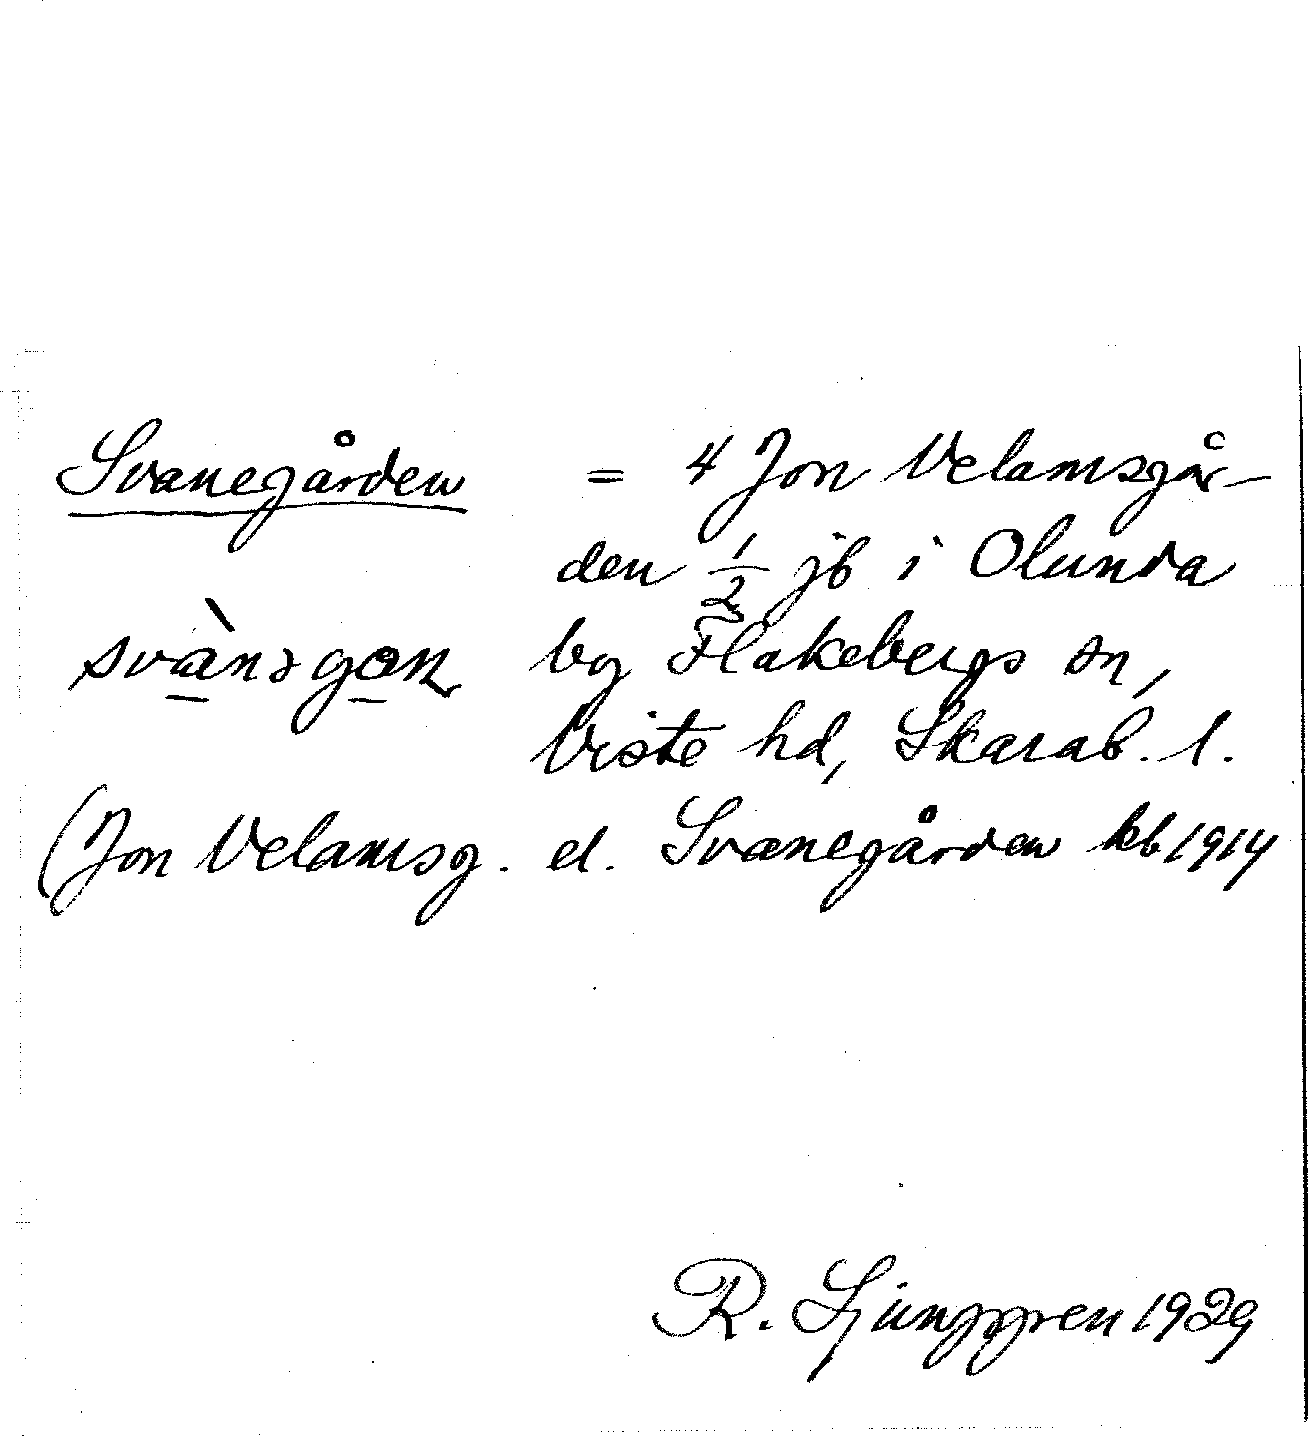 Svanegården = 4 Jon Velamsgår-
den 1/2 jb i Olunda
svànəgan by Flakebergs sn,
Viste hd, Skarab. l.
(Jon Velamsg. el. Svanegården kb 1914
R. Ljunggren 1929